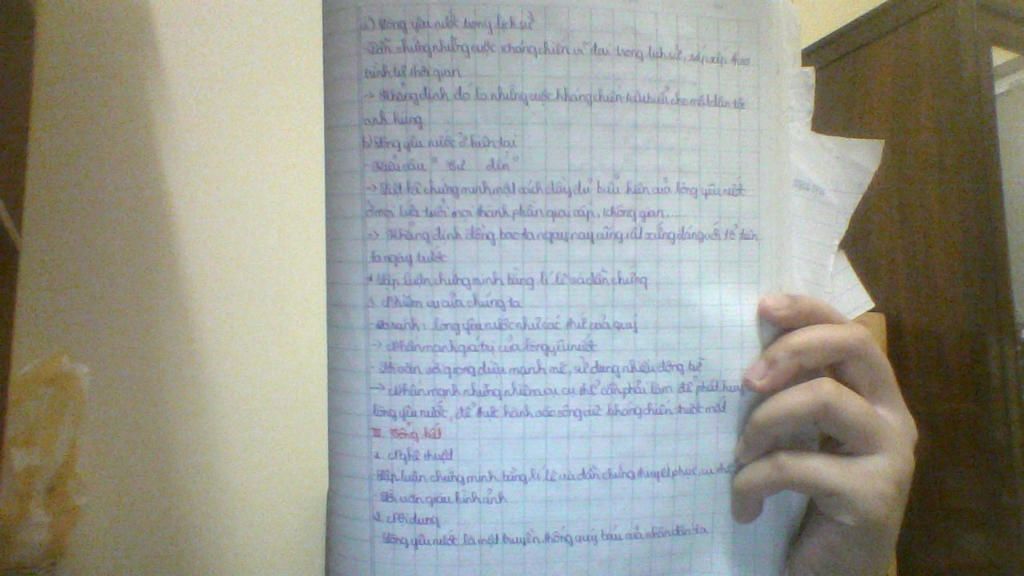 a) Lòng yêu nước trong lịch sử
- Dẫn chứng những cuộc kháng chiến vĩ đại trong lịch sử, sắp xếp theo
trình tự thời gian
-> Khẳng định đó là những cuộc kháng chiến cho một dân tộc
anh hùng
b) Lòng yêu nước ở hiện tại
- Kiểu câu " từ đến "
-> Liệt kê chứng minh một cách đầy đủ biểu hiện của lòng yêu nước
ở mọi lứa tuổi mọi thành phần giai cấp, không gian....
=> Khẳng định đồng bào ta ngày nay cũng rất xứng đáng với tổ tiên
ta ngày trước
* Lập luận chứng minh bằng lí lẽ và dẫn chứng
3. Nhiệm vụ của chúng ta
- So sánh: lòng yêu nước như các thứ của quý
-> Nhấn mạnh giá trị của lòng yêu nước
- Lời văn với giọng điệu mạnh mẽ, sử dụng nhiều động từ
-> Nhấn mạnh những nhiệm vụ cụ thể cần phải làm để phát huy
lòng yêu nước, để thực hành vào công cuộc kháng chiến trước mắt
III. Tổng kết
1. Nghệ thuật
- Lập luận chứng minh bằng lí lẽ và dẫn chứng thuyết phục, cụ thể
- Lời văn giàu hình ảnh
2. Nội dung
Lòng yêu nước là một truyền thống quý báu của nhân dân ta